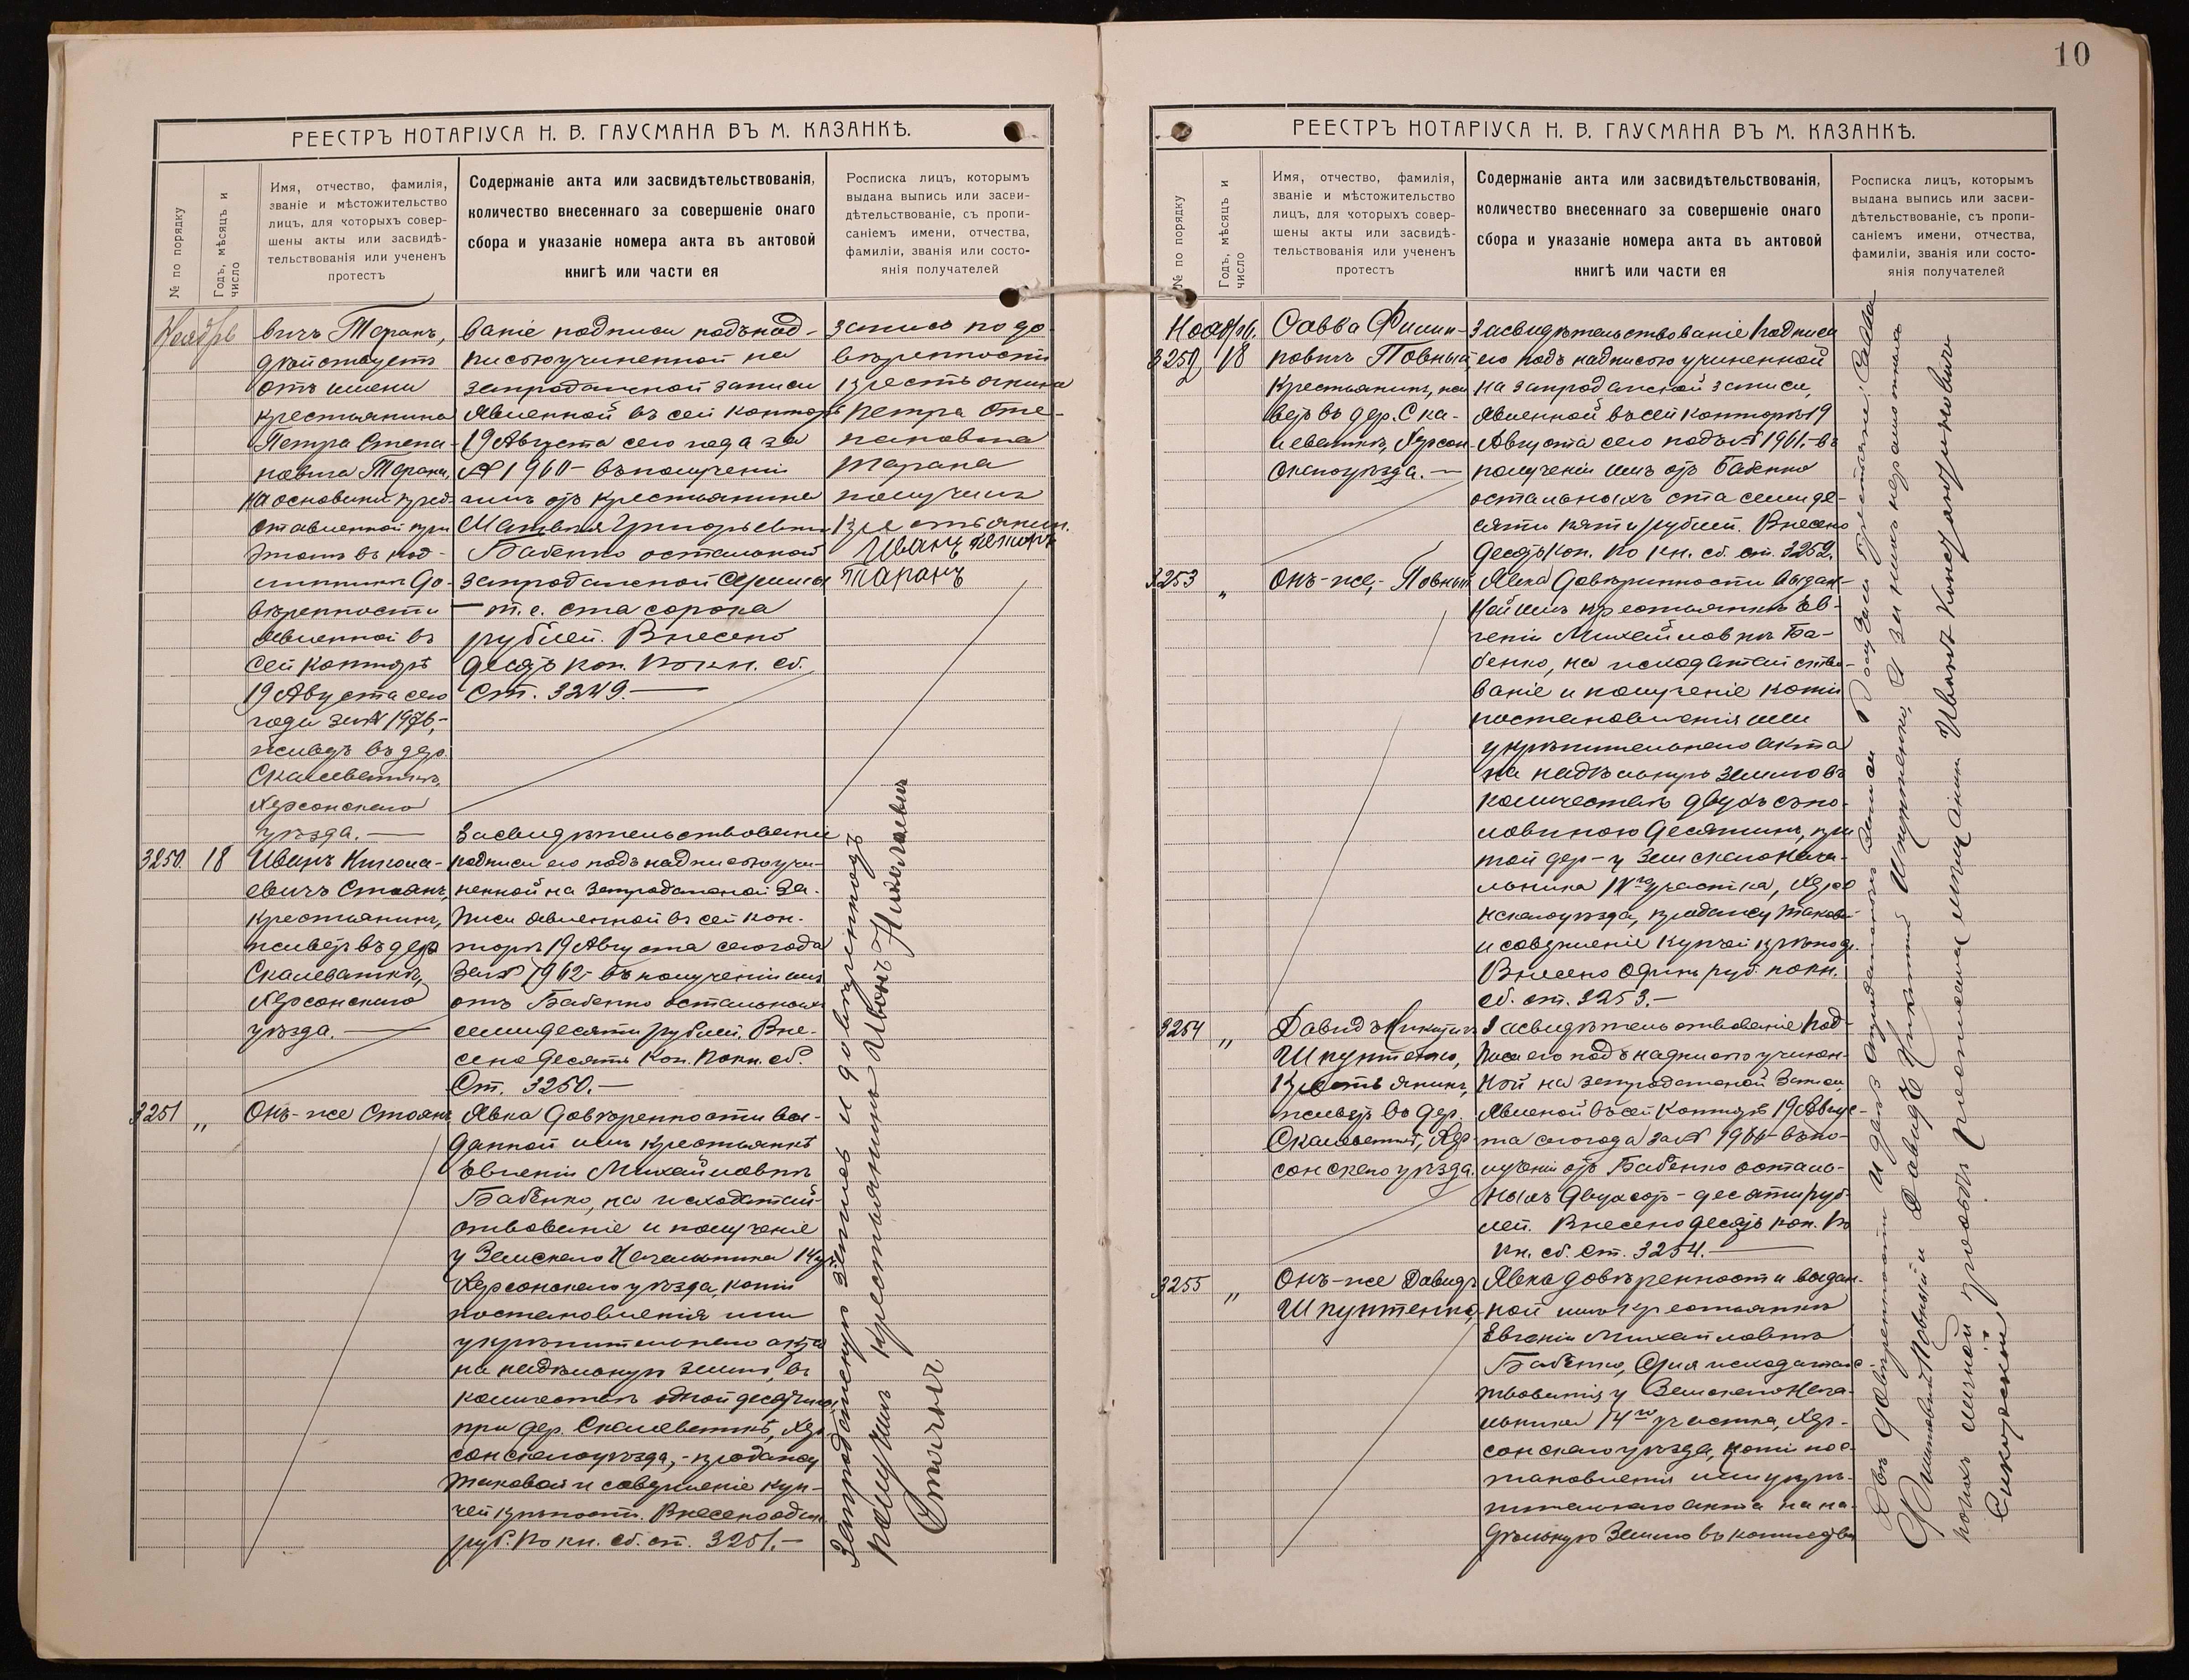 10
РЕЕСТРЪ НОТАРІУСА Н. В. ГАУСМАНА ВЪ М. КАЗАНКѢ.
№ по порядку
Годъ, мѣсяцъ и
число
Имя, отчество, фамилія,
званіе и мѣстожительство
лицъ, для которыхъ совер-
шены акты или засвидѣ-
тельствованія или учененъ
протестъ
Содержаніе акта или засвидѣтельствованія,
количество внесеннаго за совершеніе онаго
сбора и указаніе номера акта въ актовой
книгѣ или части ея
Росписка лицъ, которымъ
выдана выпись или засви-
дѣтельствованіе, съ пропи-
саніемъ имени, отчества,
фамиліи, званія или состо-
янія получателей
Ноябрь
вичъ Таранъ,
дѣйствуетъ
отъ имени
крестьянина
Петра Степа-
новича Тарана,
на основаніи пред-
ставленной при
этомъ въ под-
линникѣ до-
вѣренности
явленной въ
сей конторѣ
19 Августа сего
года за №
живетъ въ дер.
Скалеваткѣ,
Херсонскаго
уѣзда. —
ваніе подписи подъ над-
писью учиненной на
запродажной записи
явленной въ сей конторѣ
19 Августа сего года за
№ 1960 - въ полученіи
имъ отъ крестьянина
Бабенко остальной
запродажной суммы
— т. е. ста сорока
рублей. Внесено
десять коп. по кн. сб.
ст. 3249. —
запись по до-
вѣренности
крестьянина
Петра Сте-
пановича
Тарана
получилъ
крестьянин.
Иванъ
Таранъ
3250. 18
Иванъ Никола-
евичъ Стоянъ,
крестьянинъ,
живетъ въ дер.
Скалеваткѣ,
Херсонскаго
уѣзда. —
Засвидѣтельствованіе
подписи его подъ надписью учи-
ненной на запродажной за-
писи явленной въ сей кон-
торѣ 19 Августа сего года
за № 1962 - въ полученіи имъ
отъ Бабенко остальныхъ
семидесяти рублей. Вне-
сено десять коп. по кн. сб.
ст. 3250. —
3251 „
Онъ-же Стоянъ
Явка довѣренности вы-
данной имъ крестьянкѣ
Евгеніи Михайловнѣ
Бабенко, на исходатай-
ствованіе и полученіе
у Земскаго Начальника 14 уч.
Херсонскаго уѣзда, копіи
постановленія или
укрѣпительнаго акта
на надѣльную землю, въ
количествѣ одной десятины,
при дер. Скалеваткѣ, Хер-
сонскаго уѣзда, - продажу
таковой и совершеніе куп-
чей крѣпости. Внесено одинъ
руб. по кн. сб. ст. 3251. —
Запродажную запись и довѣренность
получилъ крестьянинъ Иванъ Николаевич
Стоянъ
РЕЕСТРЪ НОТАРІУСА Н. В. ГАУСМАНА ВЪ М. КАЗАНКѢ.
№ по порядку
Годъ, мѣсяцъ и
число
Имя, отчество, фамилія,
званіе и мѣстожительство
лицъ, для которыхъ совер-
шены акты или засвидѣ-
тельствованія или учененъ
протестъ
Содержаніе акта или засвидѣтельствованія,
количество внесеннаго за совершеніе онаго
сбора и указаніе номера акта въ актовой
книгѣ или части ея
Росписка лицъ, которымъ
выдана выпись или засви-
дѣтельствованіе, съ пропи-
саніемъ имени, отчества,
фамиліи, званія или состо-
янія получателей
Ноябрь.
3252 18
Савва Филип-
повичъ Повный,
крестьянинъ, жи-
ветъ въ дер. Ска-
леваткѣ, Херсон-
скаго уѣзда. —
Засвидѣтельствованіе подписи
его подъ надписью учиненной
на запродажной записи,
явленной въ сей конторѣ 19
Августа сего года № 1961. - въ
полученіи имъ отъ Бабенко
остальныхъ ста семиде-
сяти пяти рублей. Внесено
десять коп. по кн. сб. ст. 3252.
3253 „
Онъ-же, - Повный
Явка довѣренности выдан-
ной имъ крестьянкѣ Ев-
геніи Михайловнѣ Ба-
бенко, на исходатайство-
ваніе и полученіе копіи
постановленія или
укрѣпительнаго акта
на надѣльную землю въ
количествѣ двухъ съ по-
ловиною десятинъ, при
той дер - у Земскаго Нача-
льника 14го участка, Херсо
нскаго уѣзда, продажу таковой
и совершеніе купчей крѣпости.
Внесено одинъ руб. по кн.
сб. ст. 3253. —
3254 „
Давидъ Никитичъ
Шкуптенко,
крестьянинъ,
живетъ въ дер.
Скалеваткѣ, Хер-
сонскаго уѣзда.
Засвидѣтельствованіе под-
писи его подъ надписью учинен-
ной на запродажной записи,
явленной въ сей конторѣ 19 Авгус-
та сего года за № - въ по-
лученіи отъ Бабенко осталь-
ныхъ двухсотъ - десяти руб-
лей. Внесено десять коп. по
кн. сб. ст. 3254. —
3255 „
Онъ-же Давидъ
Шкуптенко,
Явка довѣренности выдан-
ной имъ крестьянкѣ
Евгеніи Михайловнѣ
Бабенко, для исходатайс-
твованія у Земскаго Нача-
льника 14го участка, Хер-
сонскаго уѣзда, копіи пос-
тановленія или укрѣ-
пительнаго акта на на-
дѣльную землю въ количествѣ
Двѣ довѣренности и двѣ запродажныхъ записи получили крестьяне: Савва
Филиповичъ Повный и Давидъ Никитичъ Шкуптенко, а за нихъ неграмотныхъ
по ихъ личной просьбѣ росписался мѣщанин Иванъ Константиновичъ